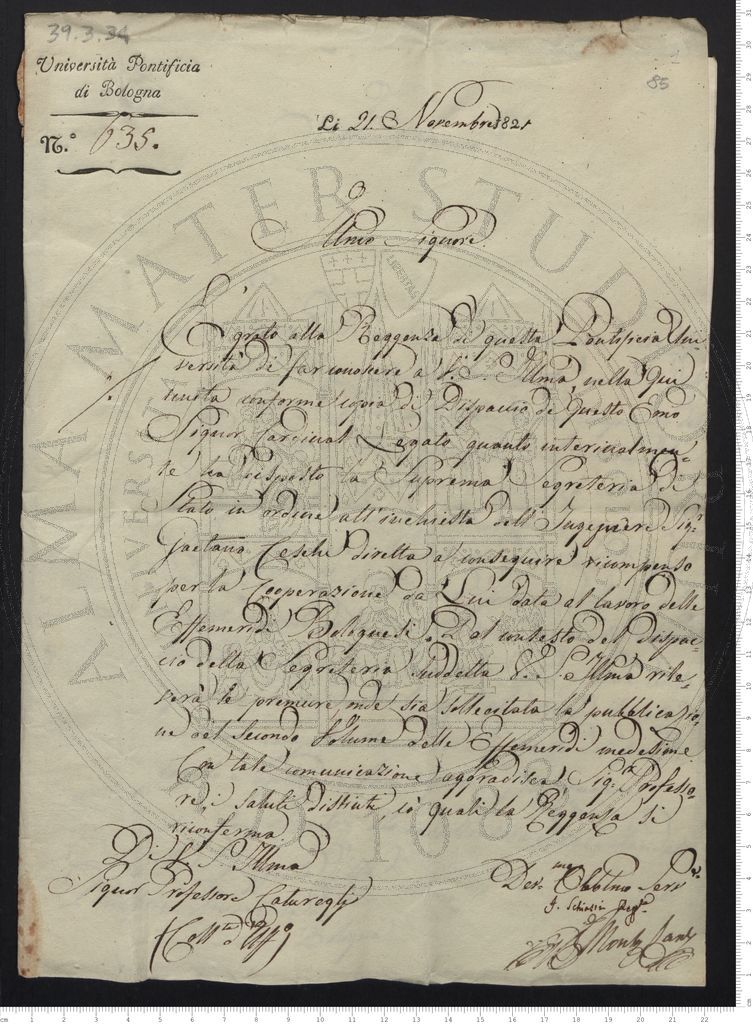 39.3.34
Università Pontificia
di Bologna
N.º 635.
85
Li 21. Novembre 1821
Illmo Signore
È grato alla Reggenza di questa Pontificia Uni-
versità di far conoscere a V.S. Illma, nella qui
unita conforme copia di Dispaccio di questo Emo
Signor Cardinal Legato quanto interinalmen-
te ha risposto la Suprema Segreteria di
Stato in ordine all'inchiesta dell'Ingegnere Sigr.
Gaetano Ceschi diretta a conseguire ricompensa
per la Cooperazione da Lui data al lavoro delle
Effemeridi Bolognesi. Dal contesto del dispac-
cio della Segreteria suddetta V. S. Illma rile-
verà le premure, onde sia sollecitata la pubblicazio-
ne del secondo Volume delle Effemeridi medesime.
Con tale comunicazione aggradisca, Sig.r Professo-
re, i saluti distinti, co' quali la Reggenza si
riconferma
Di V. S. Illma
Signor Professore Caturegli
Dev.mo Obblmo Serv.e
F. Schiassi Regg.e
ALMA MATER STUDIORUM
LIBERTAS
A.D. 1088